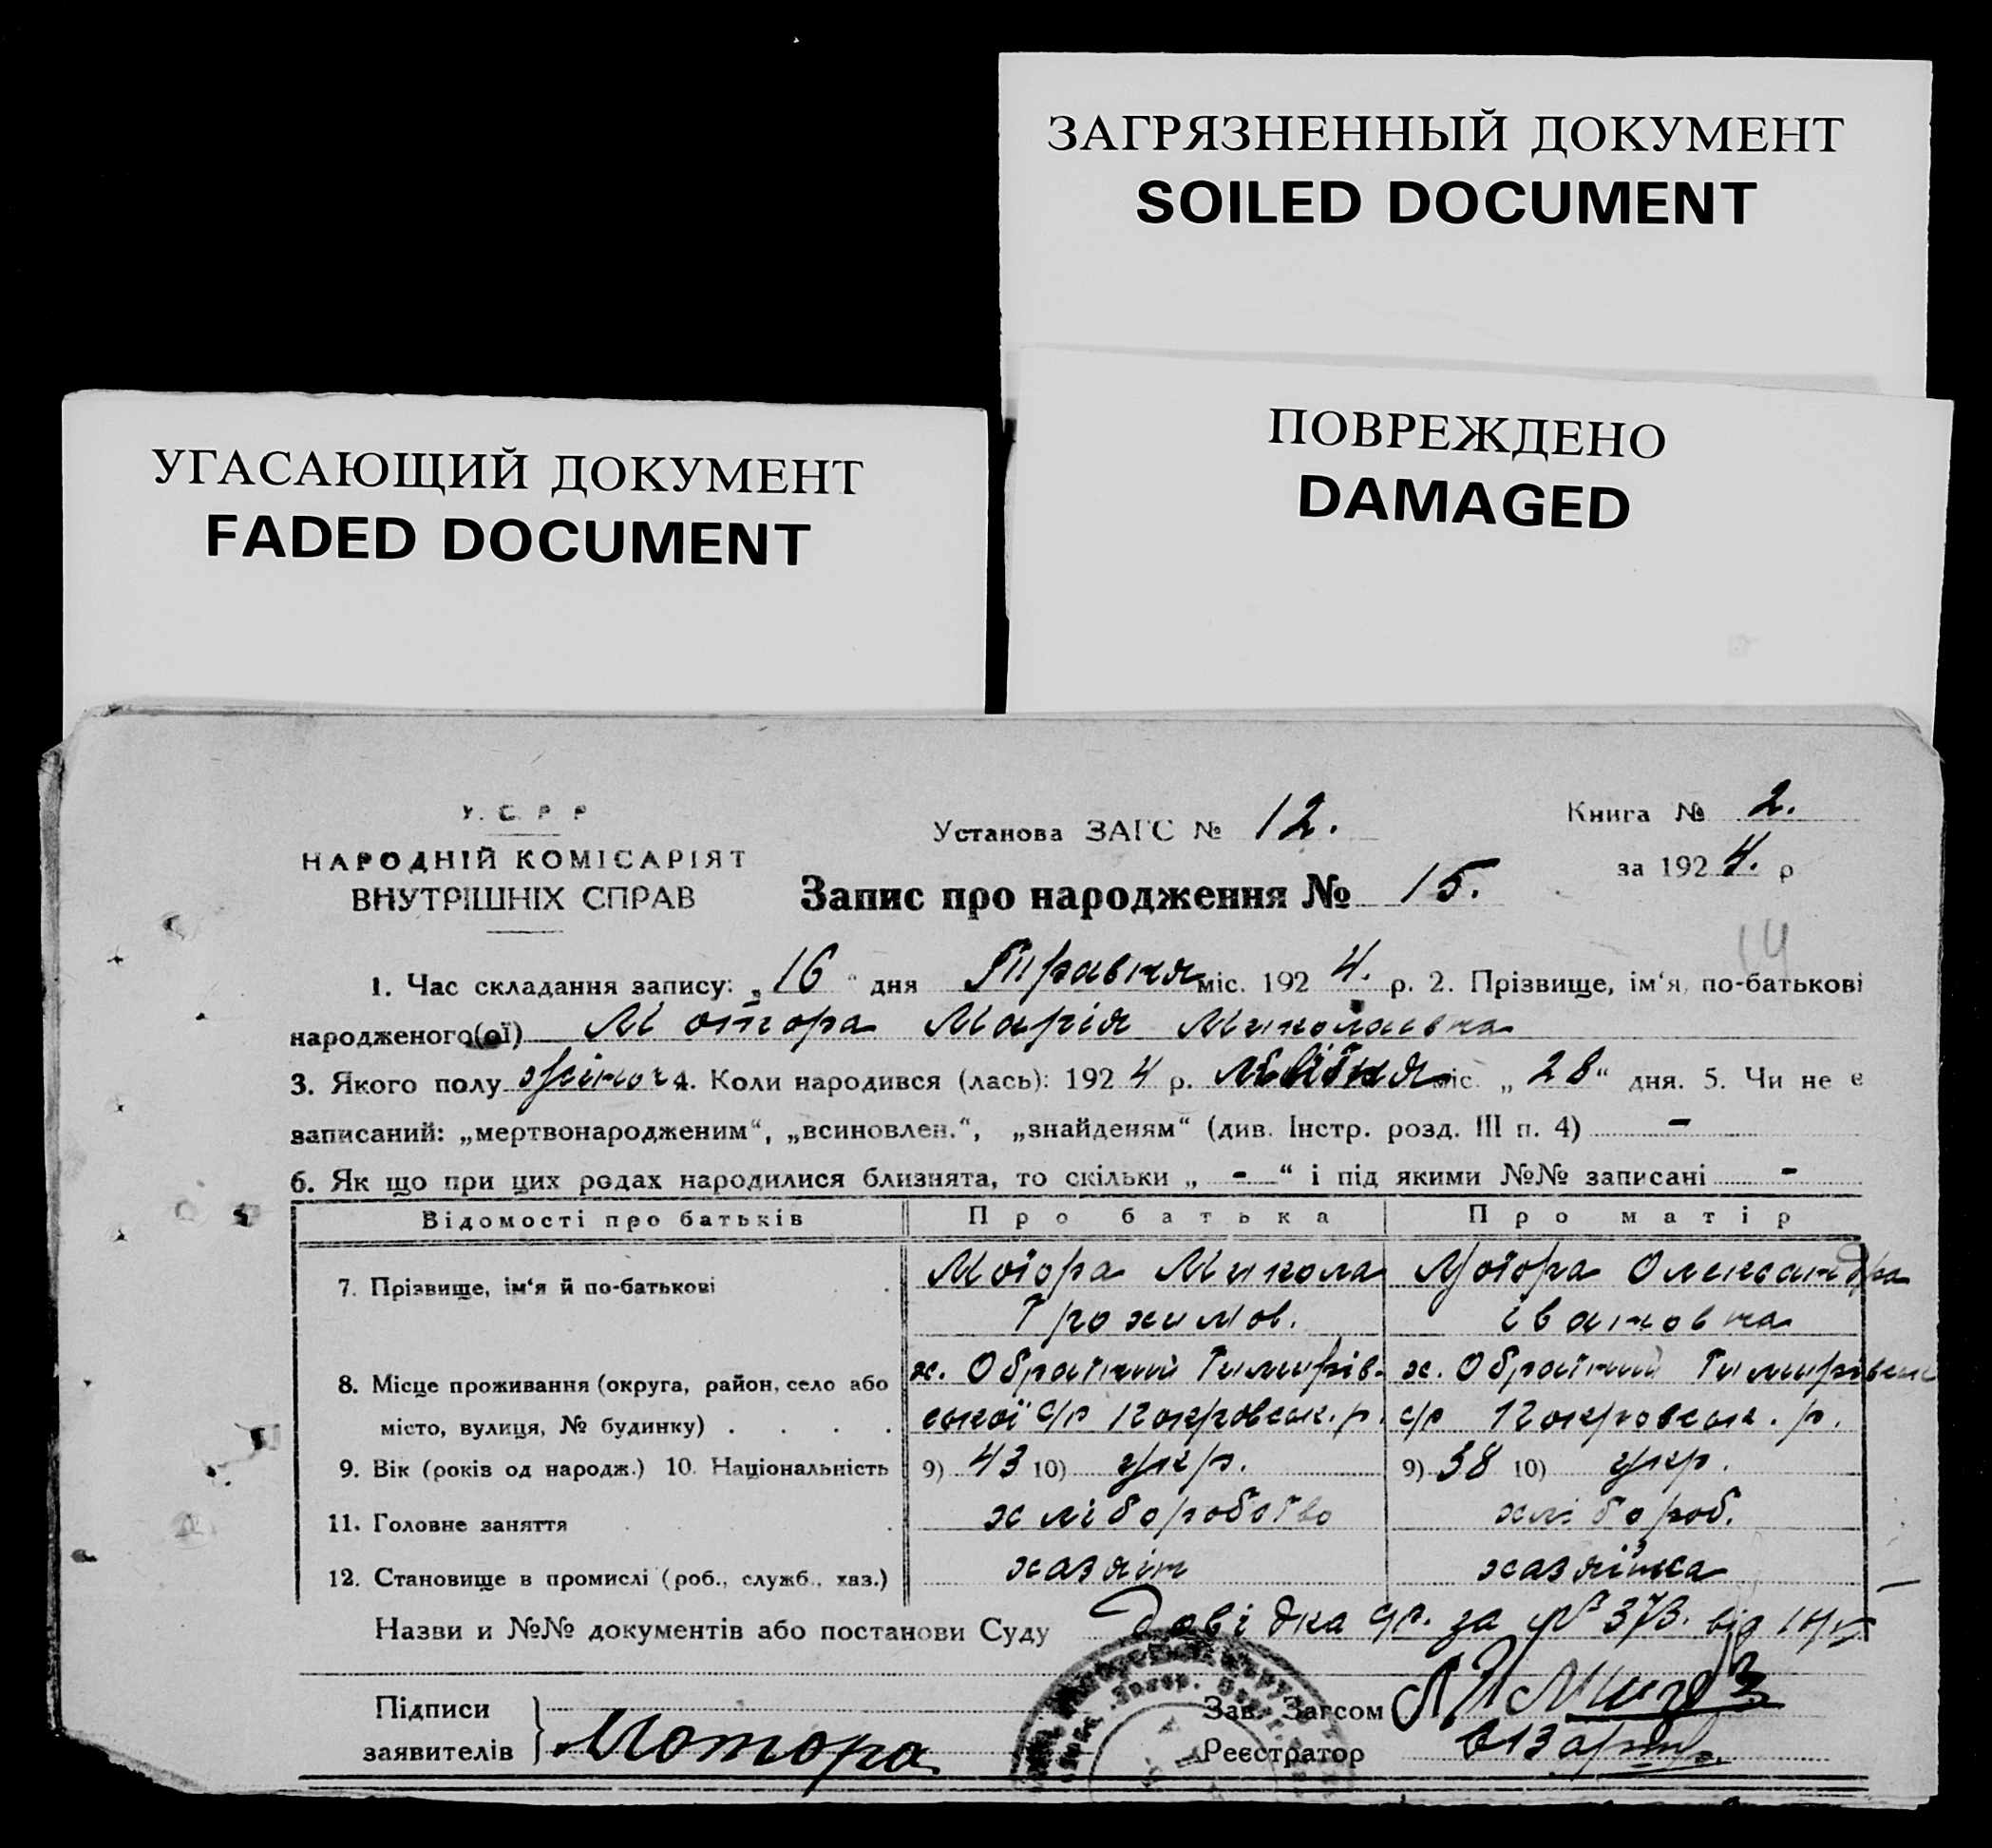 ЗАГРЯЗНЕННЫЙ ДОКУМЕНТ
SOILED DOCUMENT
ПОВРЕЖДЕНО
DAMAGED
УГАСАЮЩИЙ ДОКУМЕНТ
FADED DOCUMENT
У. С. Р. Р
НАРОДНІЙ КОМІСАРІЯТ
ВНУТРІШНІХ СПРАВ
Установа ЗАГС № 12.
Книга № 2.
за 1924. р
Запис про народження № 15.
14
1. Час складання запису: „16“ дня Травня міс. 1924. р. 2. Прізвище, ім‘я, по-батькові
народженого(ої) Мотора Марія Миколаївна
3. Якого полу жіноч 4. Коли народився (лась): 1924 р. міс. „28“ дня. 5. Чи не є
записаний: „мертвонародженим“, „всиновлен.“, „знайденям“ (див. Інстр. розд. III п. 4) -
6. Як що при цих родах народилися близнята, то скільки „ - “ і під якими №№ записані -
Відомості про батьків Про батька Про матір
7. Прізвище, ім‘я й по-батькові Мотора Микола Мотора Олександра
Трохимов. івановна
8. Місце проживання (округа, район, село або х. Обратний Тимирів- х. Обратний
місто, вулиця, № будинку) ської с/р Покровськ. р. с/р Покровськ. р.
9. Вік (років од народж.) 10. Національність 9) 43 10) укр. 9) 38 10) укр.
11. Головне заняття хліборобство хлібороб.
12. Становище в промислі (роб., служб., хаз.) хазяїн хазяйка
Назви и №№ документів або постанови Суду Довідка с/р. за № 373. від
Підписи Зав. Загсом
заявителів Мотора Реєстратор